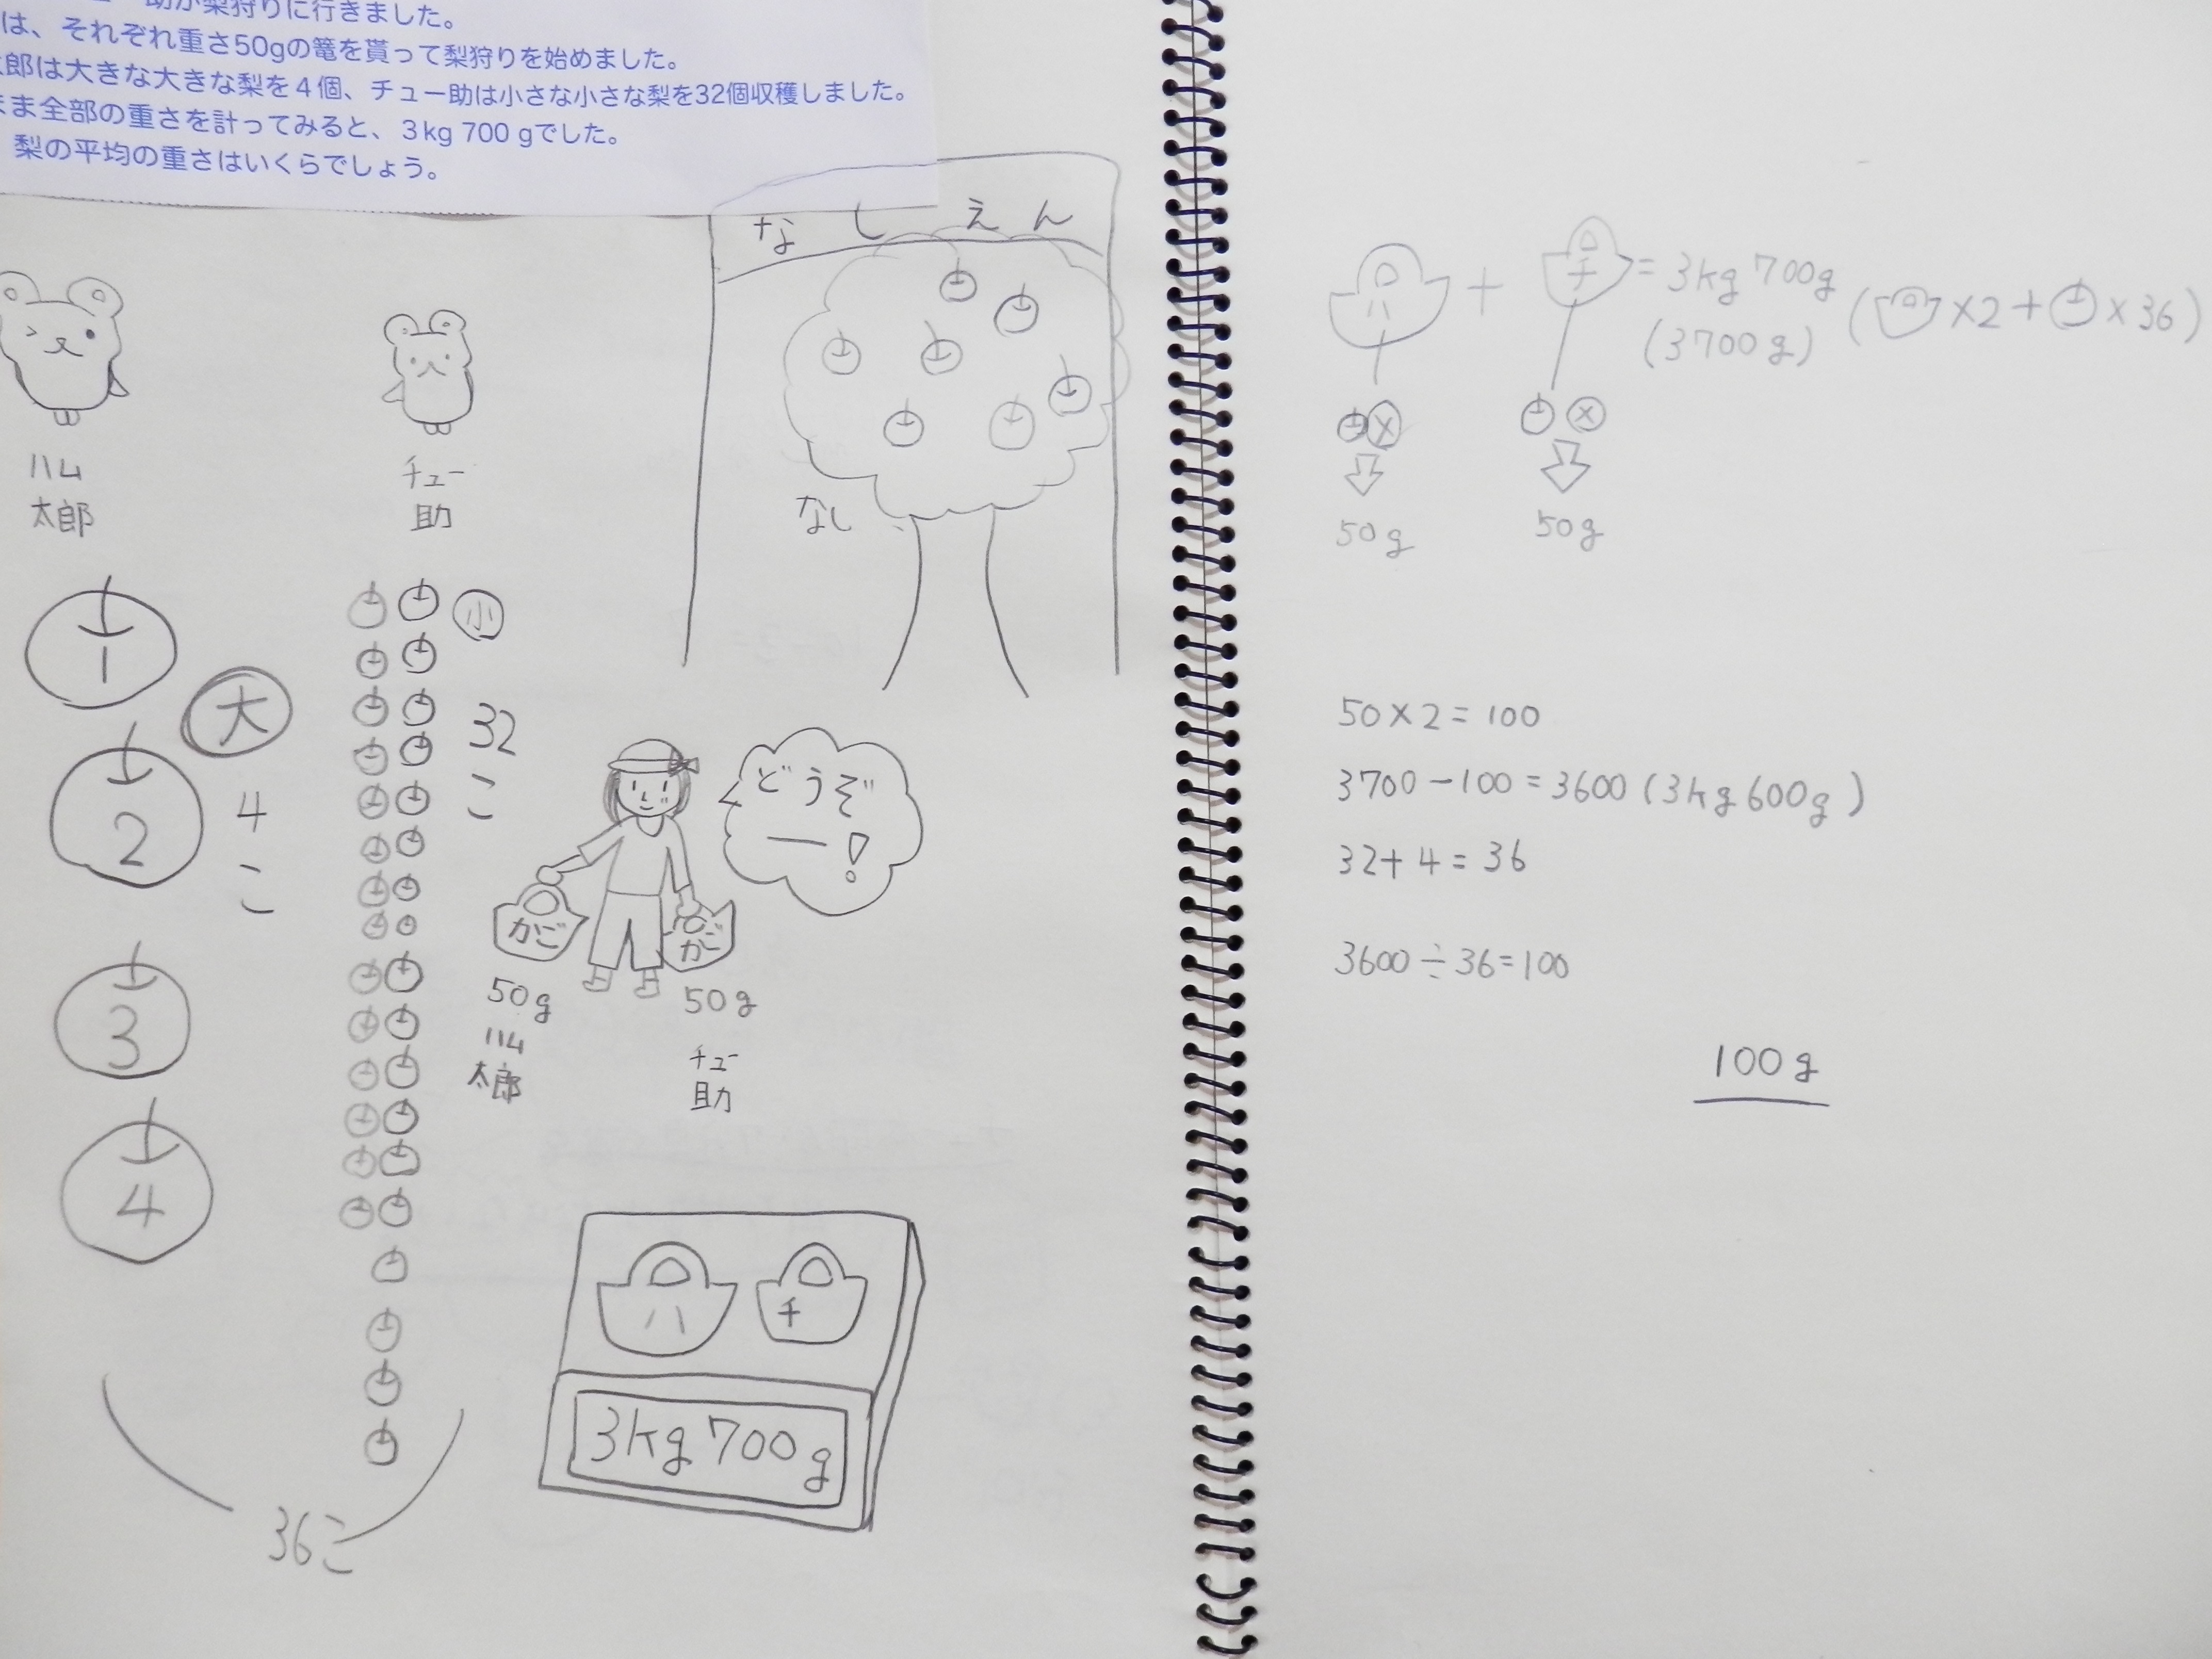 助が梨狩りに行きました。
は、それぞれ重さ50gの篭を貰って梨狩りを始めました。
郎は大きな大きな梨を４個、チュー助は小さな小さな梨を32個収穫しました。
まま全部の重さを計ってみると、３kg 700 gでした。
梨の平均の重さはいくらでしょう。
なしえん
ハム
太郎
チュー
助
なし
1
大
2
4
こ
3
4
小
32
こ
36こ
どうぞ
ー!
かご
かご
50g
50g
ハム
太郎
チュー
助
ハ
チ
3kg 700g
ハ + チ = 3kg 700g
(3700g)
( ×2 + ×36)
50g
50g
50×2=100
3700-100=3600(3kg600g)
32+4=36
3600÷36=100
100g